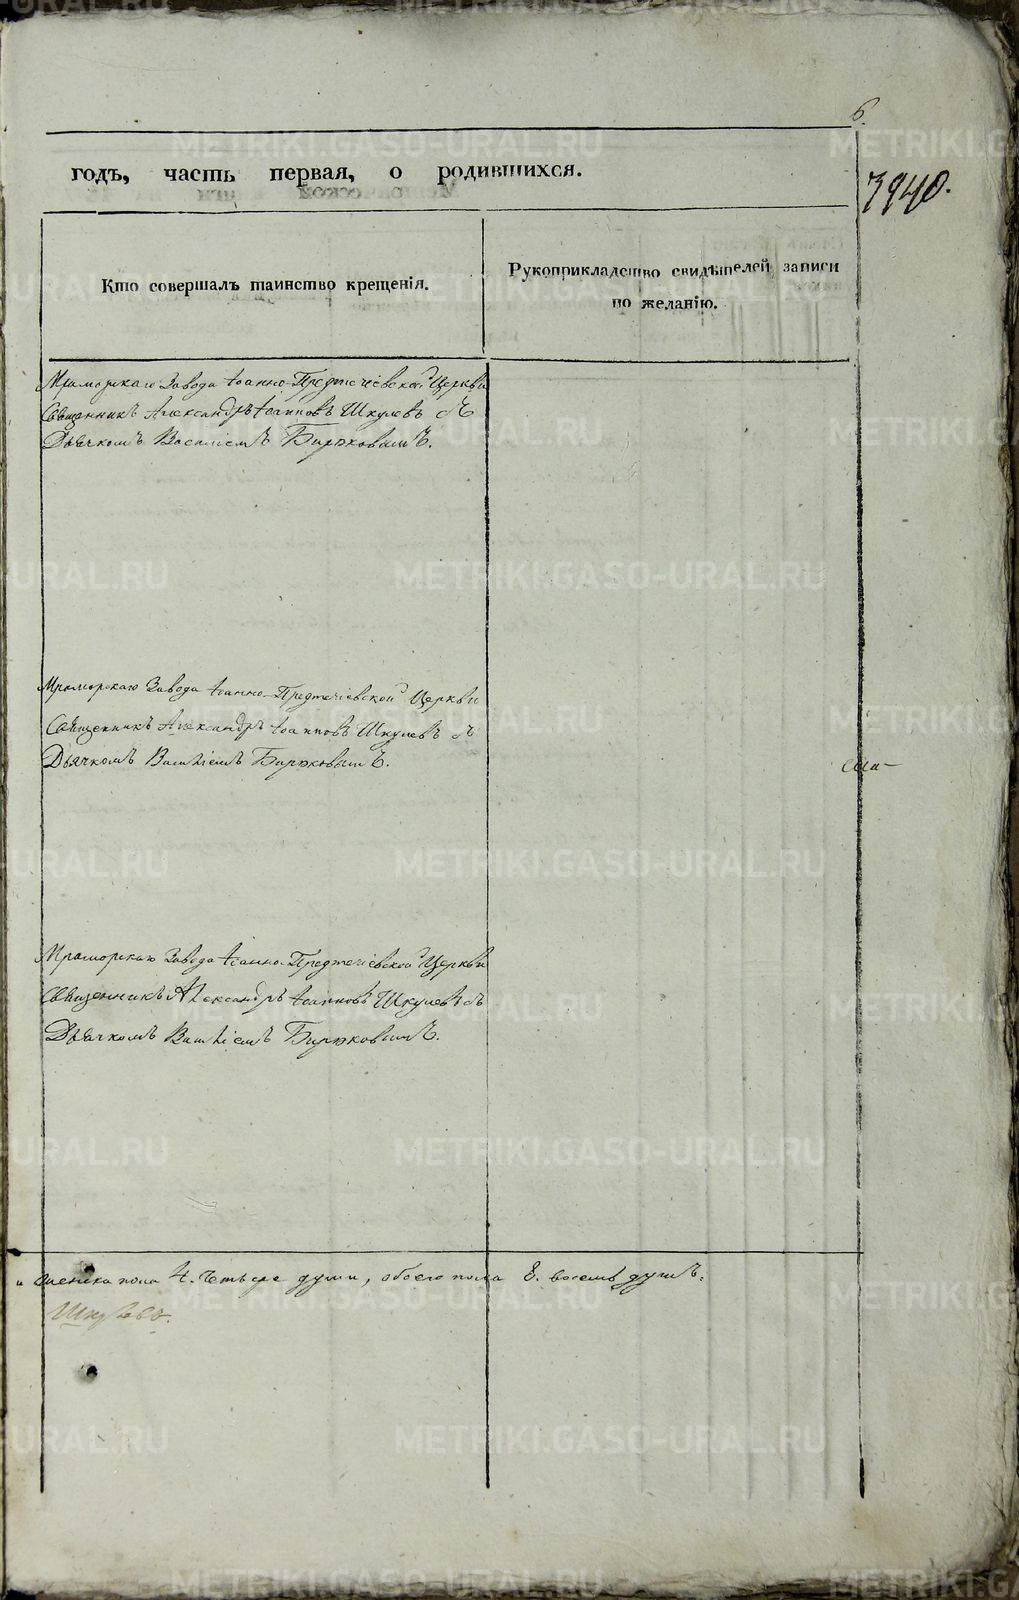 6.
годъ, часть первая, о родившихся.
3940.
Кто совершалъ таинство крещенія.
Рукоприкладство свидѣтелей записи
по желанію.
Мраморскаго Завода Іоанно-Предтечіевской Церкви
Священникъ Александръ Іоанновъ Шкулевъ съ
Дьячкомъ Василіемъ Бирюковымъ.
Мраморскаго Завода Іоанно-Предтечіевской Церкви
Священникъ Александръ Іоанновъ Шкулевъ съ
Дьячкомъ Василіемъ Бирюковымъ.
Мраморскаго Завода Іоанно-Предтечіевской Церкви
Священникъ Александръ Іоанновъ Шкулевъ съ
Дьячкомъ Василіемъ Бирюковымъ.
и женска пола 4. четыре души, обоего пола 8. восемь душъ.
Шкулевъ.
METRIKI.GASO-URAL.RU